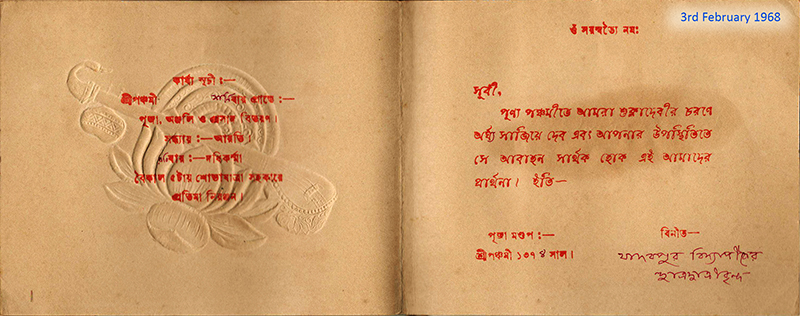 কার্য্য সূচী :—
শ্রীপঞ্চমী শনিবার প্রাতে :—
পূজা, অঞ্জলি ও প্রসাদ বিতরণ।
সন্ধ্যায় :—আরতি।
বার :—দধিকর্ম্মা
বৈকাল ৫টায় শোভাযাত্রা সহকারে
প্রতিমা নিরঞ্জন।
3rd February 1968
ওঁ সরস্বত্যৈ নমঃ
সুধী,
পূণ্য পঞ্চমীতে আমরা শুক্লাদেবীর চরণে
অর্ঘ্য সাজিয়ে দেব এবং আপনার উপস্থিতিতে
সে আবাহন সার্থক হোক এই আমাদের
প্রার্থনা। ইতি—
পূজা মণ্ডপ :—
শ্রীপঞ্চমী ১৩৭৪ সাল।
বিনীত—
যাদবপুর বিদ্যাপীঠের
ছাত্রছাত্রীবৃন্দ